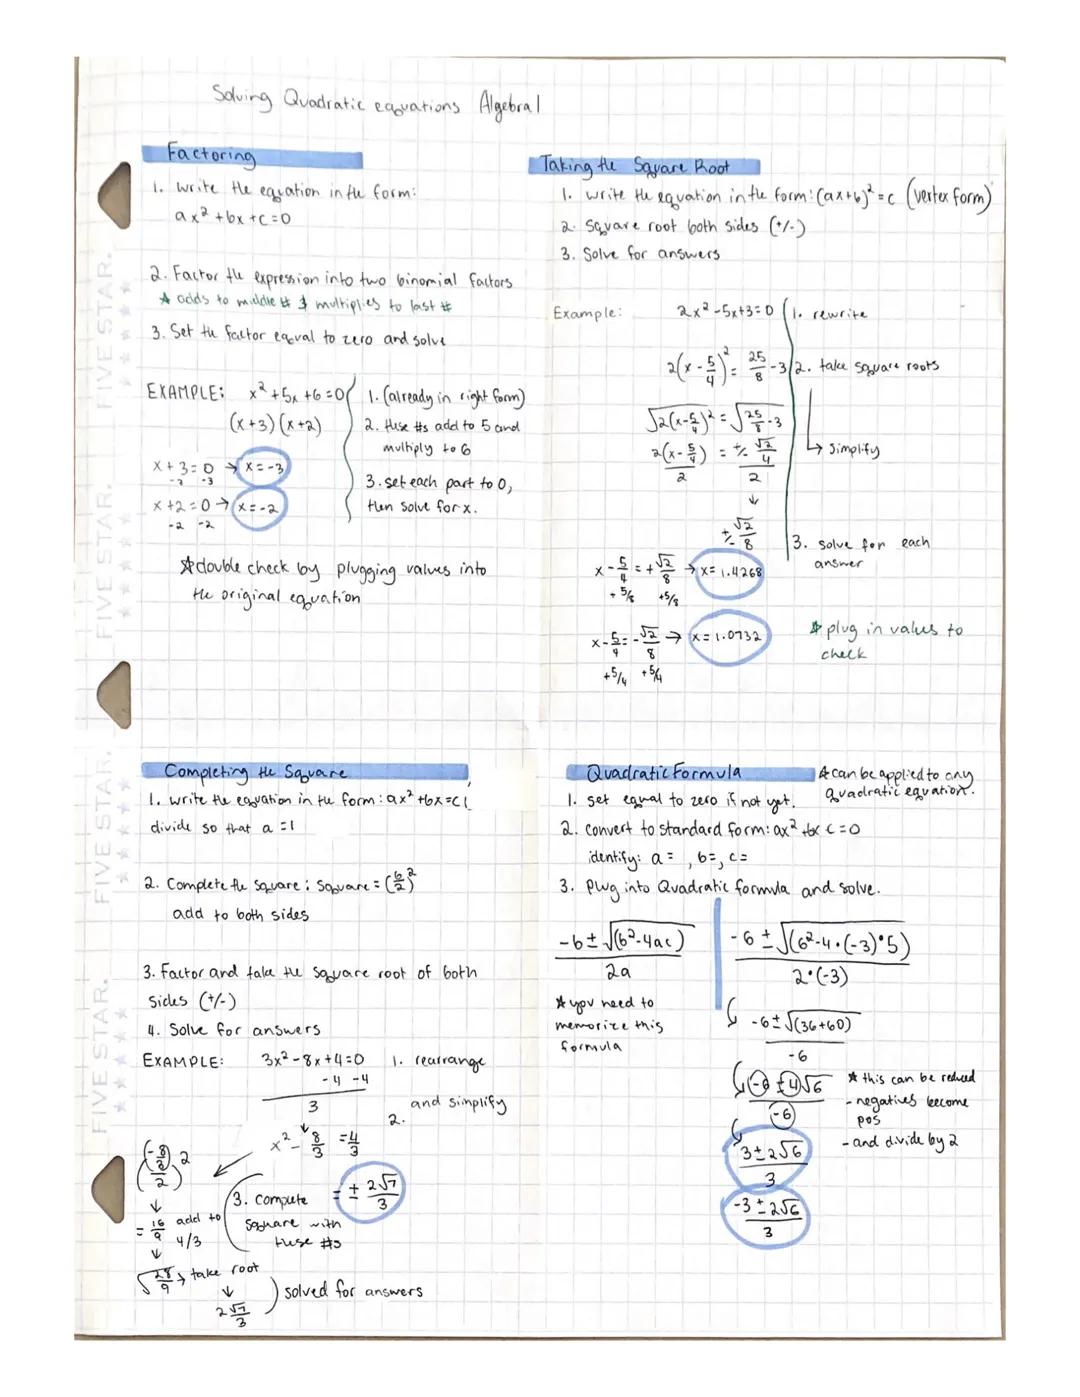 Solving Quadratic equations Algebra 1
Factoring
1. Write the equation in the form:
ax² + bx + c = 0
2. Factor the expression into two binomial factors
☆ adds to middle # & multiplies to last #
3. Set the factor equal to zero and solve
EXAMPLE: x² + 5x + 6 = 0
(x+3)(x+2)
x + 3 = 0 → x = -3
-3 -3
x + 2 = 0 → x = -2
-2 -2
1. (already in right form)
2. these #s add to 5 and
multiply to 6
3. set each part to 0,
then solve for x.
☆ double check by plugging values into
the original equation
Taking the Square Root
1. write the equation in the form: (ax+b)² = c (vertex form)
2. Square root both sides (+/-)
3. Solve for answers
Example: 2x² - 5x + 3 = 0
2(x - 5/4)² = 25/8 - 3
√2(x - 5/4)² = √25/8 - 3
2(x - 5/4) = +/- √2/4
2 2
↓
+/- √2/8
x - 5/4 = + √2/8 → x = 1.4268
+ 5/8 + 5/8
x - 5/4 = - √2/8 → x = 1.0732
+5/4 +5/4
1. rewrite
2. take square roots
↳ simplify
3. solve for each
answer
☆ plug in values to
check
Completing the Square
1. write the equation in the form: ax² + bx = c,
divide so that a = 1
2. Complete the square: Square = (b/2)²
add to both sides
3. Factor and take the square root of both
sides (+/-)
4. Solve for answers
EXAMPLE: 3x² - 8x + 4 = 0 1. rearrange
-4 -4
3 and simplify
2.
x² - 8/3 = 4/3
(-8/3 / 2) 2
↓
= 16/9 add to
4/3
↓
√28/9 → take root
↓
2√7/3
3. compute
square with
these #s
= ± 2√7/3
solved for answers
Quadratic Formula
☆ can be applied to any
quadratic equation.
1. set equal to zero if not yet.
2. convert to standard form: ax² + bx c = 0
identify: a = , b =, c =
3. Plug into Quadratic formula and solve.
-b ± √(b² - 4ac)
2a
☆ you need to
memorize this
formula
-6 ± √(6² - 4·(-3)·5)
2·(-3)
-6 ± √(36+60)
-6
-6 ± 4√6
-6
☆ this can be reduced
- negatives become
pos
- and divide by 2
3 ± 2√6
3
-3 ± 2√6
3
FIVE STAR.
FIVE STAR.
FIVE STAR.
FIVE STAR.